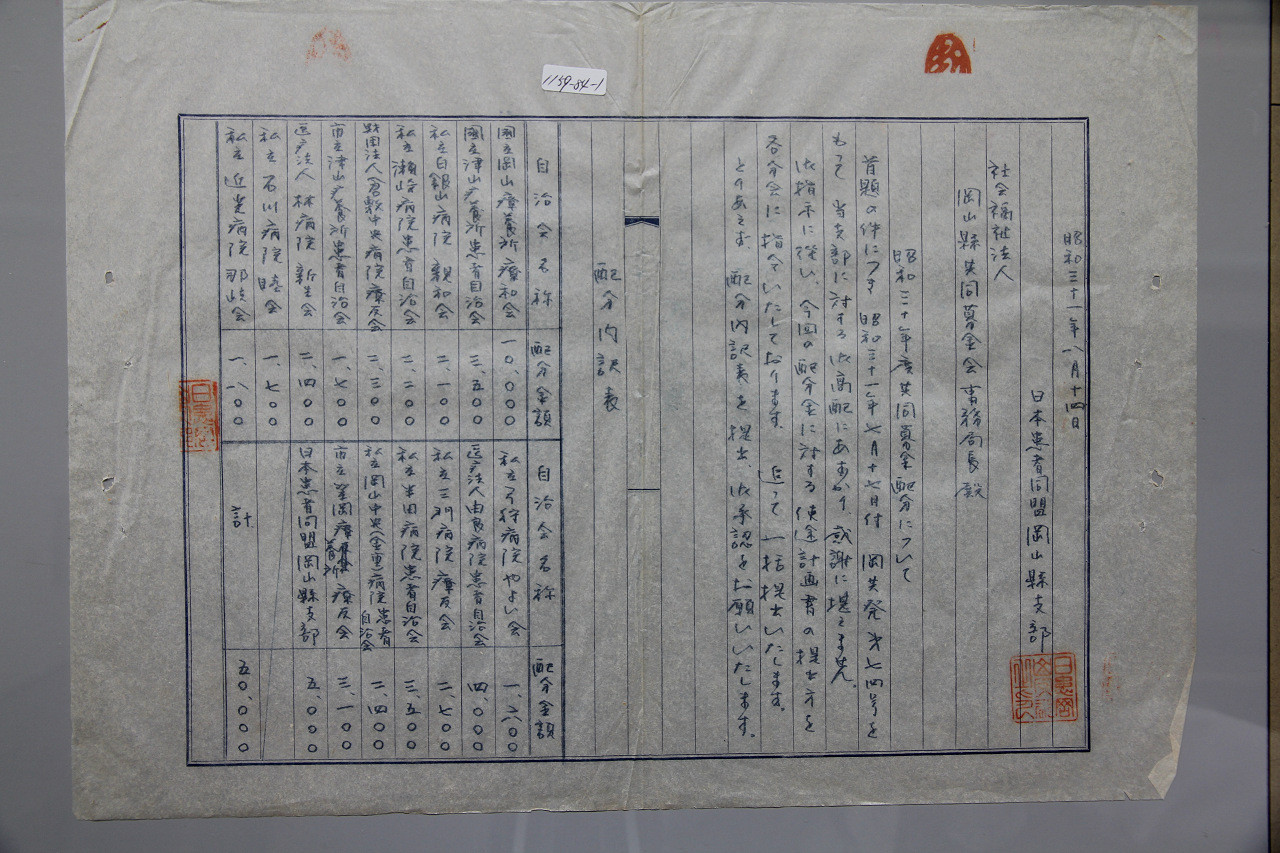 1159-84-1
昭和三十一年八月十四日
日本患者同盟岡山縣支部
社会福祉法人
岡山縣共同募金会事務局長殿
昭和三十年度共同募金配分について
首題の件につき昭和三十一年七月十七日付岡共発第七四号を
もって当支部に対する御高配にあずかり感謝に堪えません。
御指示に従い、今回の配分金に対する使途計画書の提出方を
各分会に指令いたしております。追って一括提出いたします。
とりあえず、配分内訳表を提出、御承認をお願いいたします。
配分内訳表
自治会名称 配分金額 自治会名称 配分金額
國立岡山療養所療和会 一〇、〇〇〇 私立 病院やよい会 一、六〇〇
國立津山療養所患者自治会 三、五〇〇 医療法人由良病院患者自治会 四、〇〇〇
私立白銀山病院親和会 二、一〇〇 私立三門病院療友会 二、七〇〇
私立瀬崎病院患者自治会 二、二〇〇 私立半田病院患者自治会 三、五〇〇
財団法人倉敷中央病院療友会 二、三〇〇 私立岡山中央(金重)病院患者自治会 二、四〇〇
市立津山療養所患者自治会 一、七〇〇 市立笠岡療養所療友会 三、一〇〇
医療法人林病院新生会 二、四〇〇 日本患者同盟岡山縣支部 五、〇〇〇
私立石川病院睦会 一、七〇〇
私立近光病院那岐会 一、八〇〇 計 五〇、〇〇〇